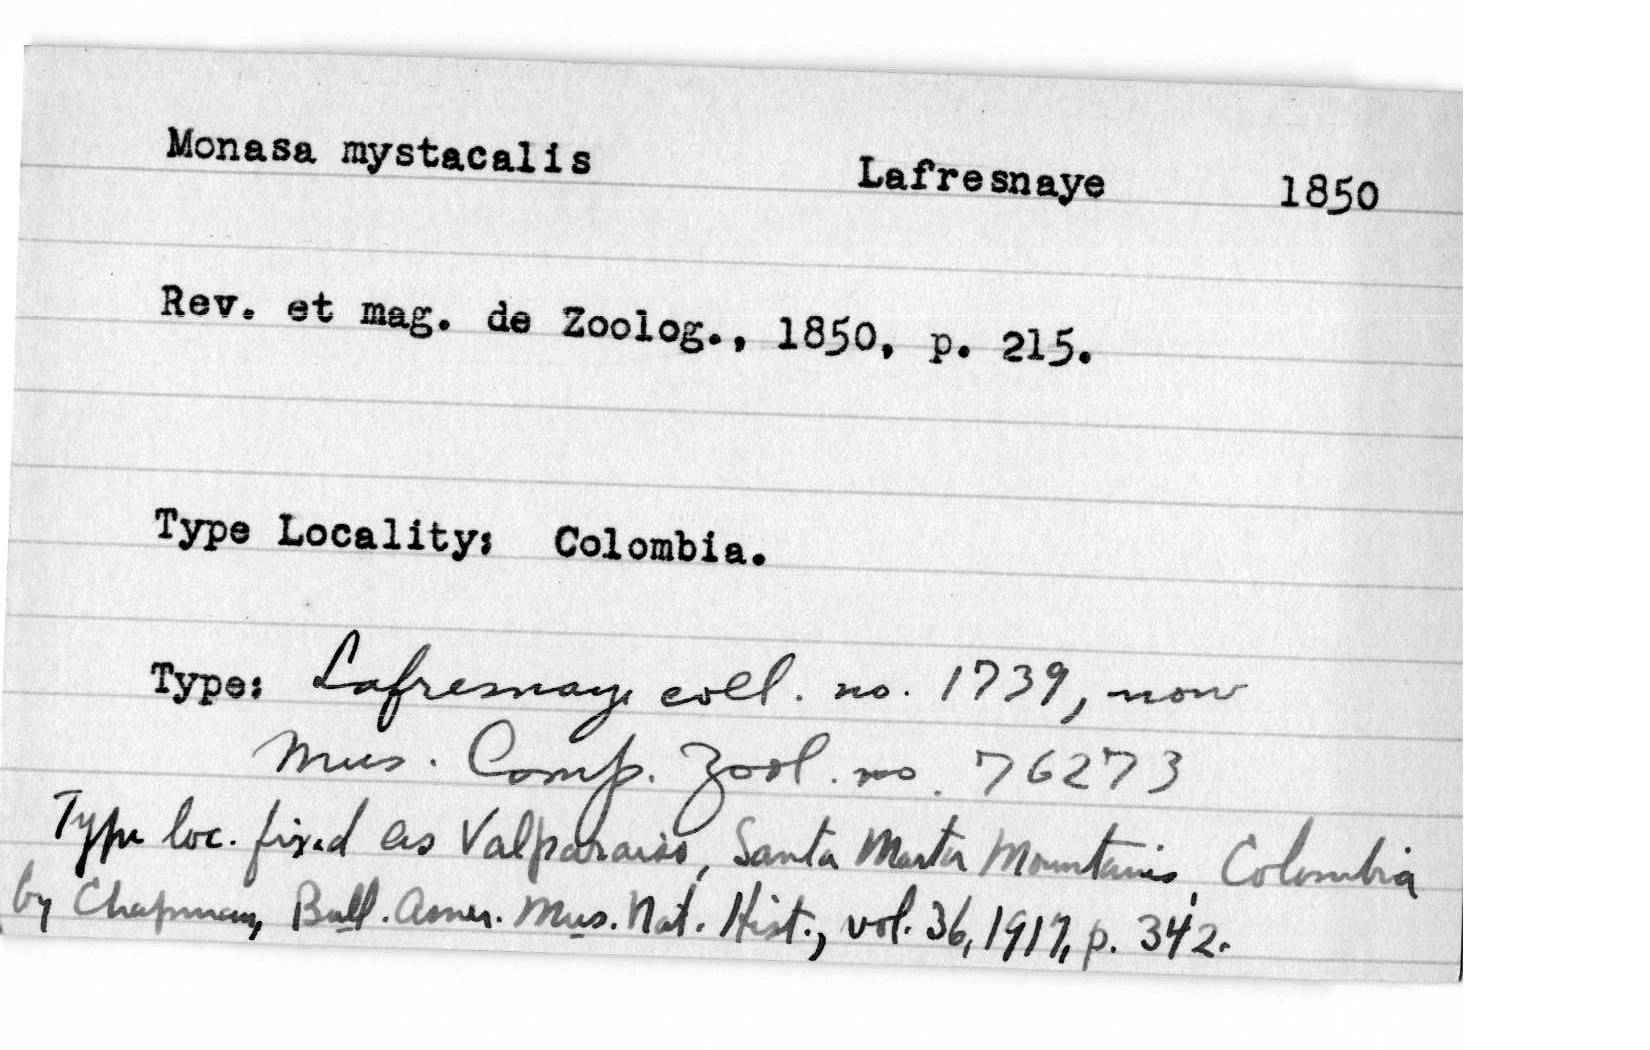 Monasa mystacalis Lafresnaye 1850
Rev. et mag. de Zoolog., 1850, p. 215.
Type Locality: Colombia.
Type: Lafresnaye coll. no. 1739, now
Mus. Comp. Zool. no. 76273
Type loc. fixed as Valparaiso, Santa Marta Mountains, Colombia
by Chapman, Bull. Amer. Mus. Nat. Hist., vol. 36, 1917, p. 342.